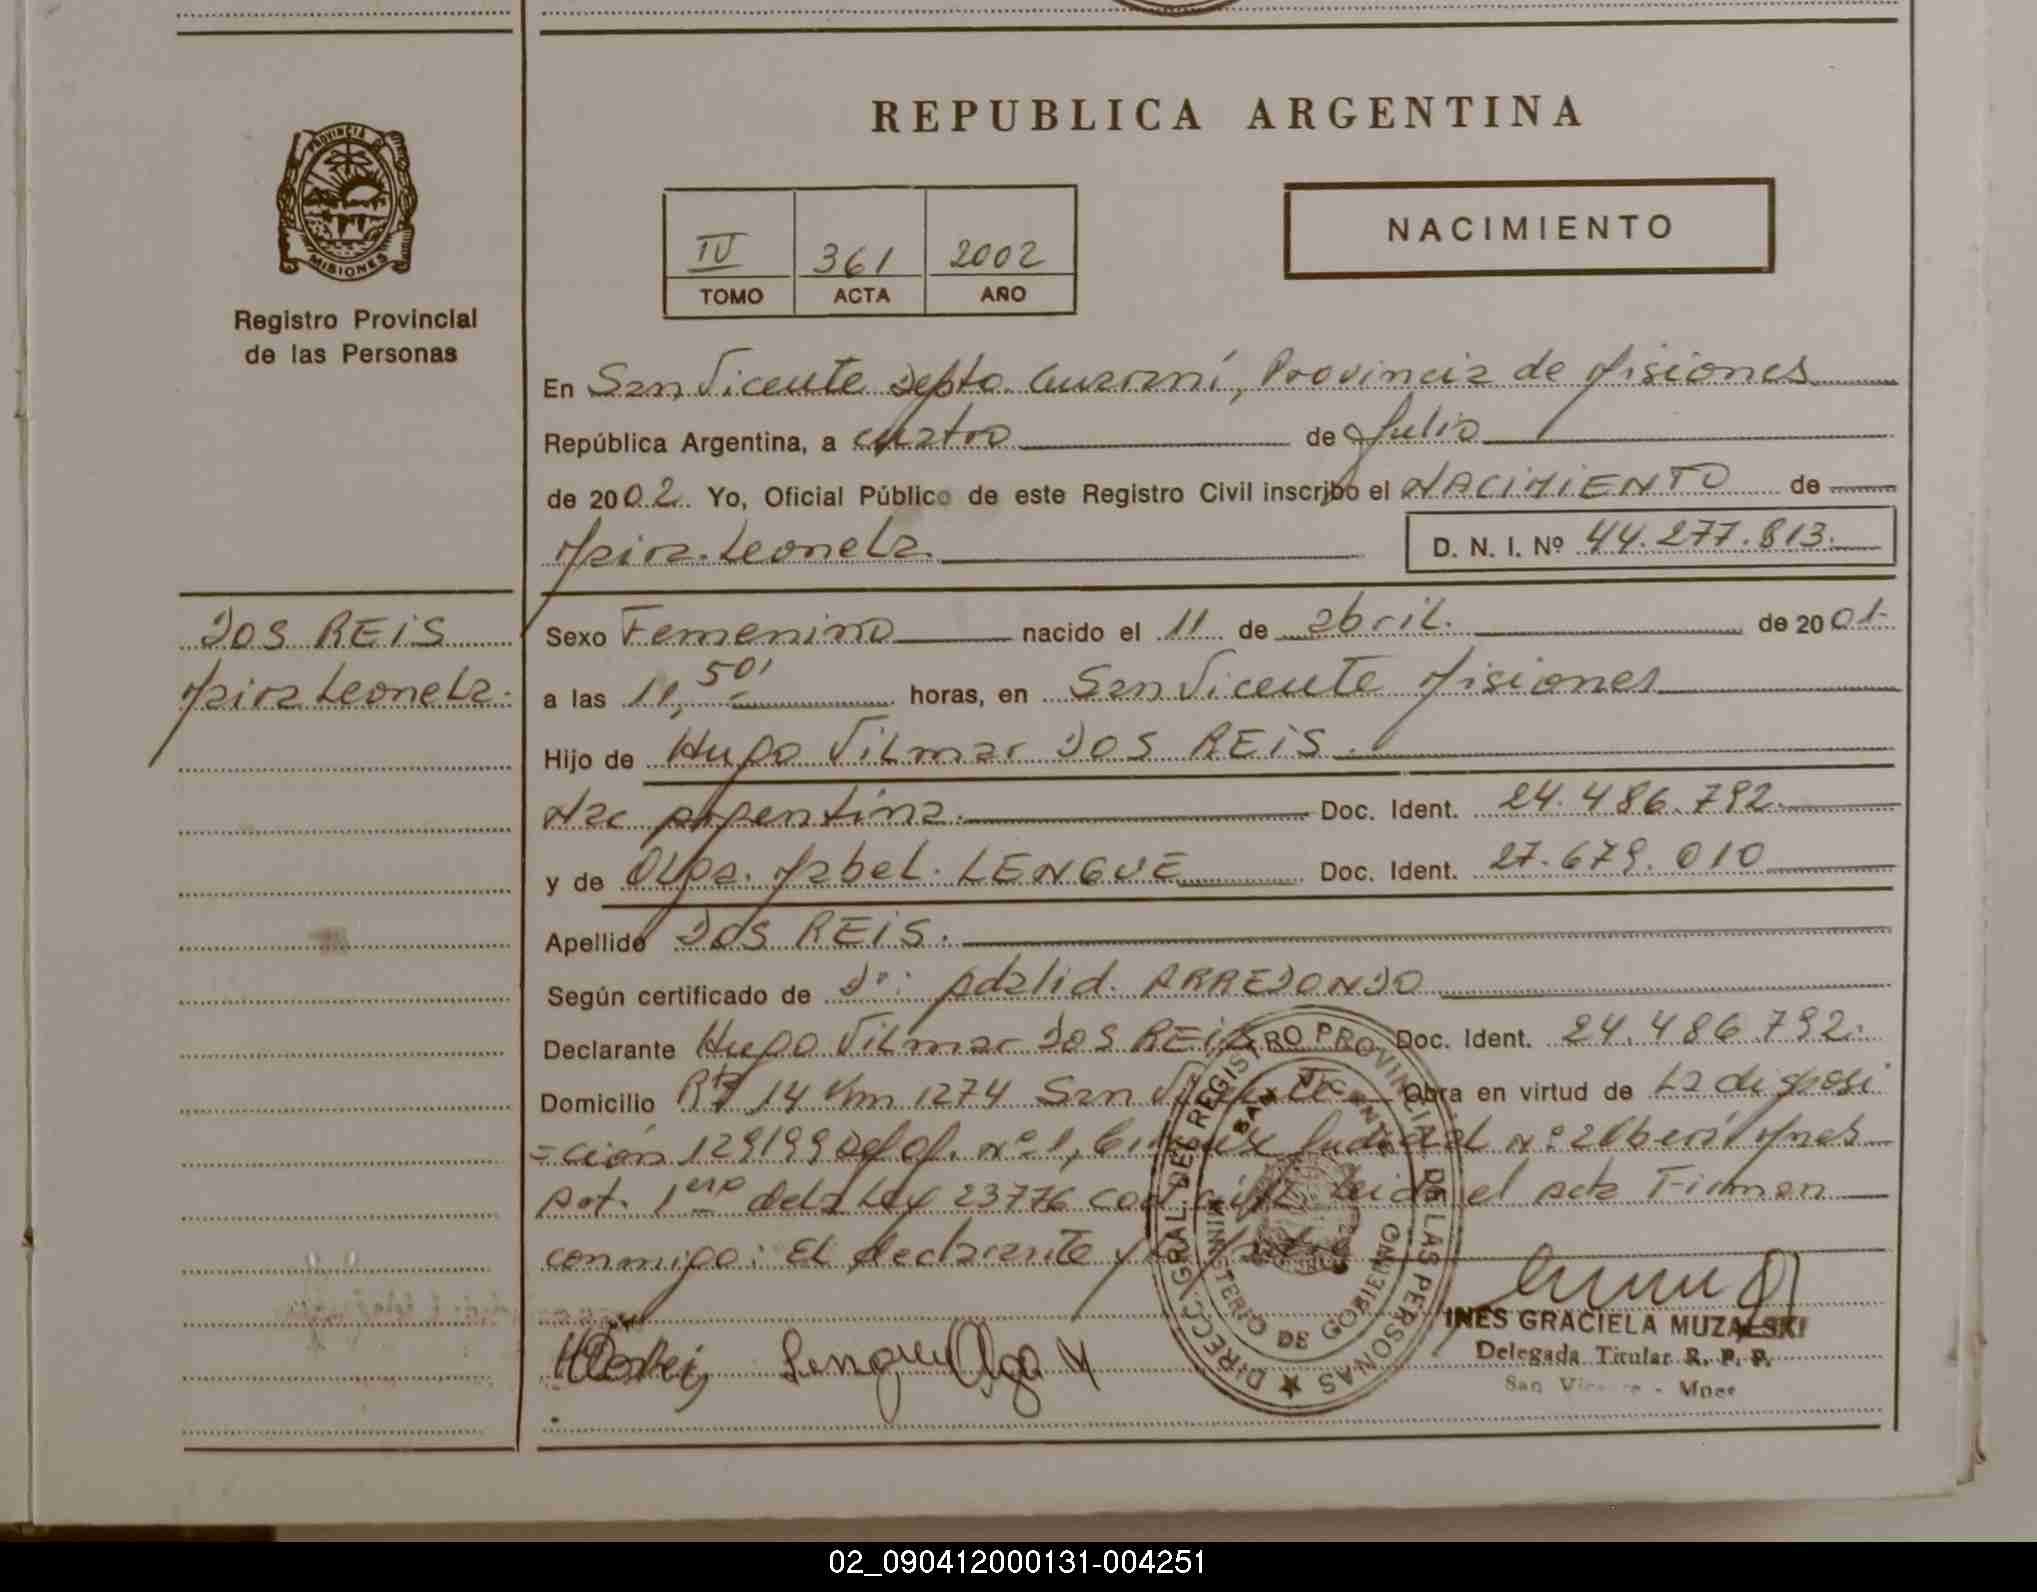 REPUBLICA ARGENTINA
PROVINCIA DE
MISIONES
Registro Provincial
de las Personas
IV 361 2002
TOMO ACTA AÑO
NACIMIENTO
En San Vicente Depto. Guaraní, Provincia de Misiones
República Argentina, a cuatro de Julio
de 2002. Yo, Oficial Público de este Registro Civil inscribo el NACIMIENTO de
Maira Leonela. D. N. I. Nº 44.277.813.
DOS REIS
Maira Leonela.
Sexo Femenino nacido el 11 de abril. de 2001.
a las 11,50' horas, en San Vicente Misiones
Hijo de Hugo Vilmar DOS REIS.
Nac argentina. Doc. Ident. 24.486.792.
y de Olga Mabel. LENGUE Doc. Ident. 27.679.010
Apellido DOS REIS.
Según certificado de Dr: Adalid. ARREDONDO
Declarante Hugo Vilmar DOS REIS Doc. Ident. 24.486.792.
Domicilio Rta 14 Km 1274 San Vicente Obra en virtud de La disposi
=ción 129/99 Def of. nº 1, Judicial nº 2 Oberá Mnes
Art. 1ero de la Ley 23776 leida el acta Firman
conmigo: El declarante y
DIRECC. GRAL. DEL REGISTRO PROVINCIAL DE LAS PERSONAS
SAN VICENTE
MINISTERIO DE GOBIERNO
Lengue Olga M
INES GRACIELA MUZALSKI
Delegada Titular R. P. P.
San Vicente - Mnes
02_090412000131-004251